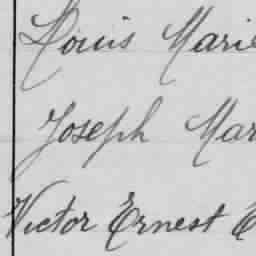 Louis Marie
Joseph Mar
Victor Ernest E